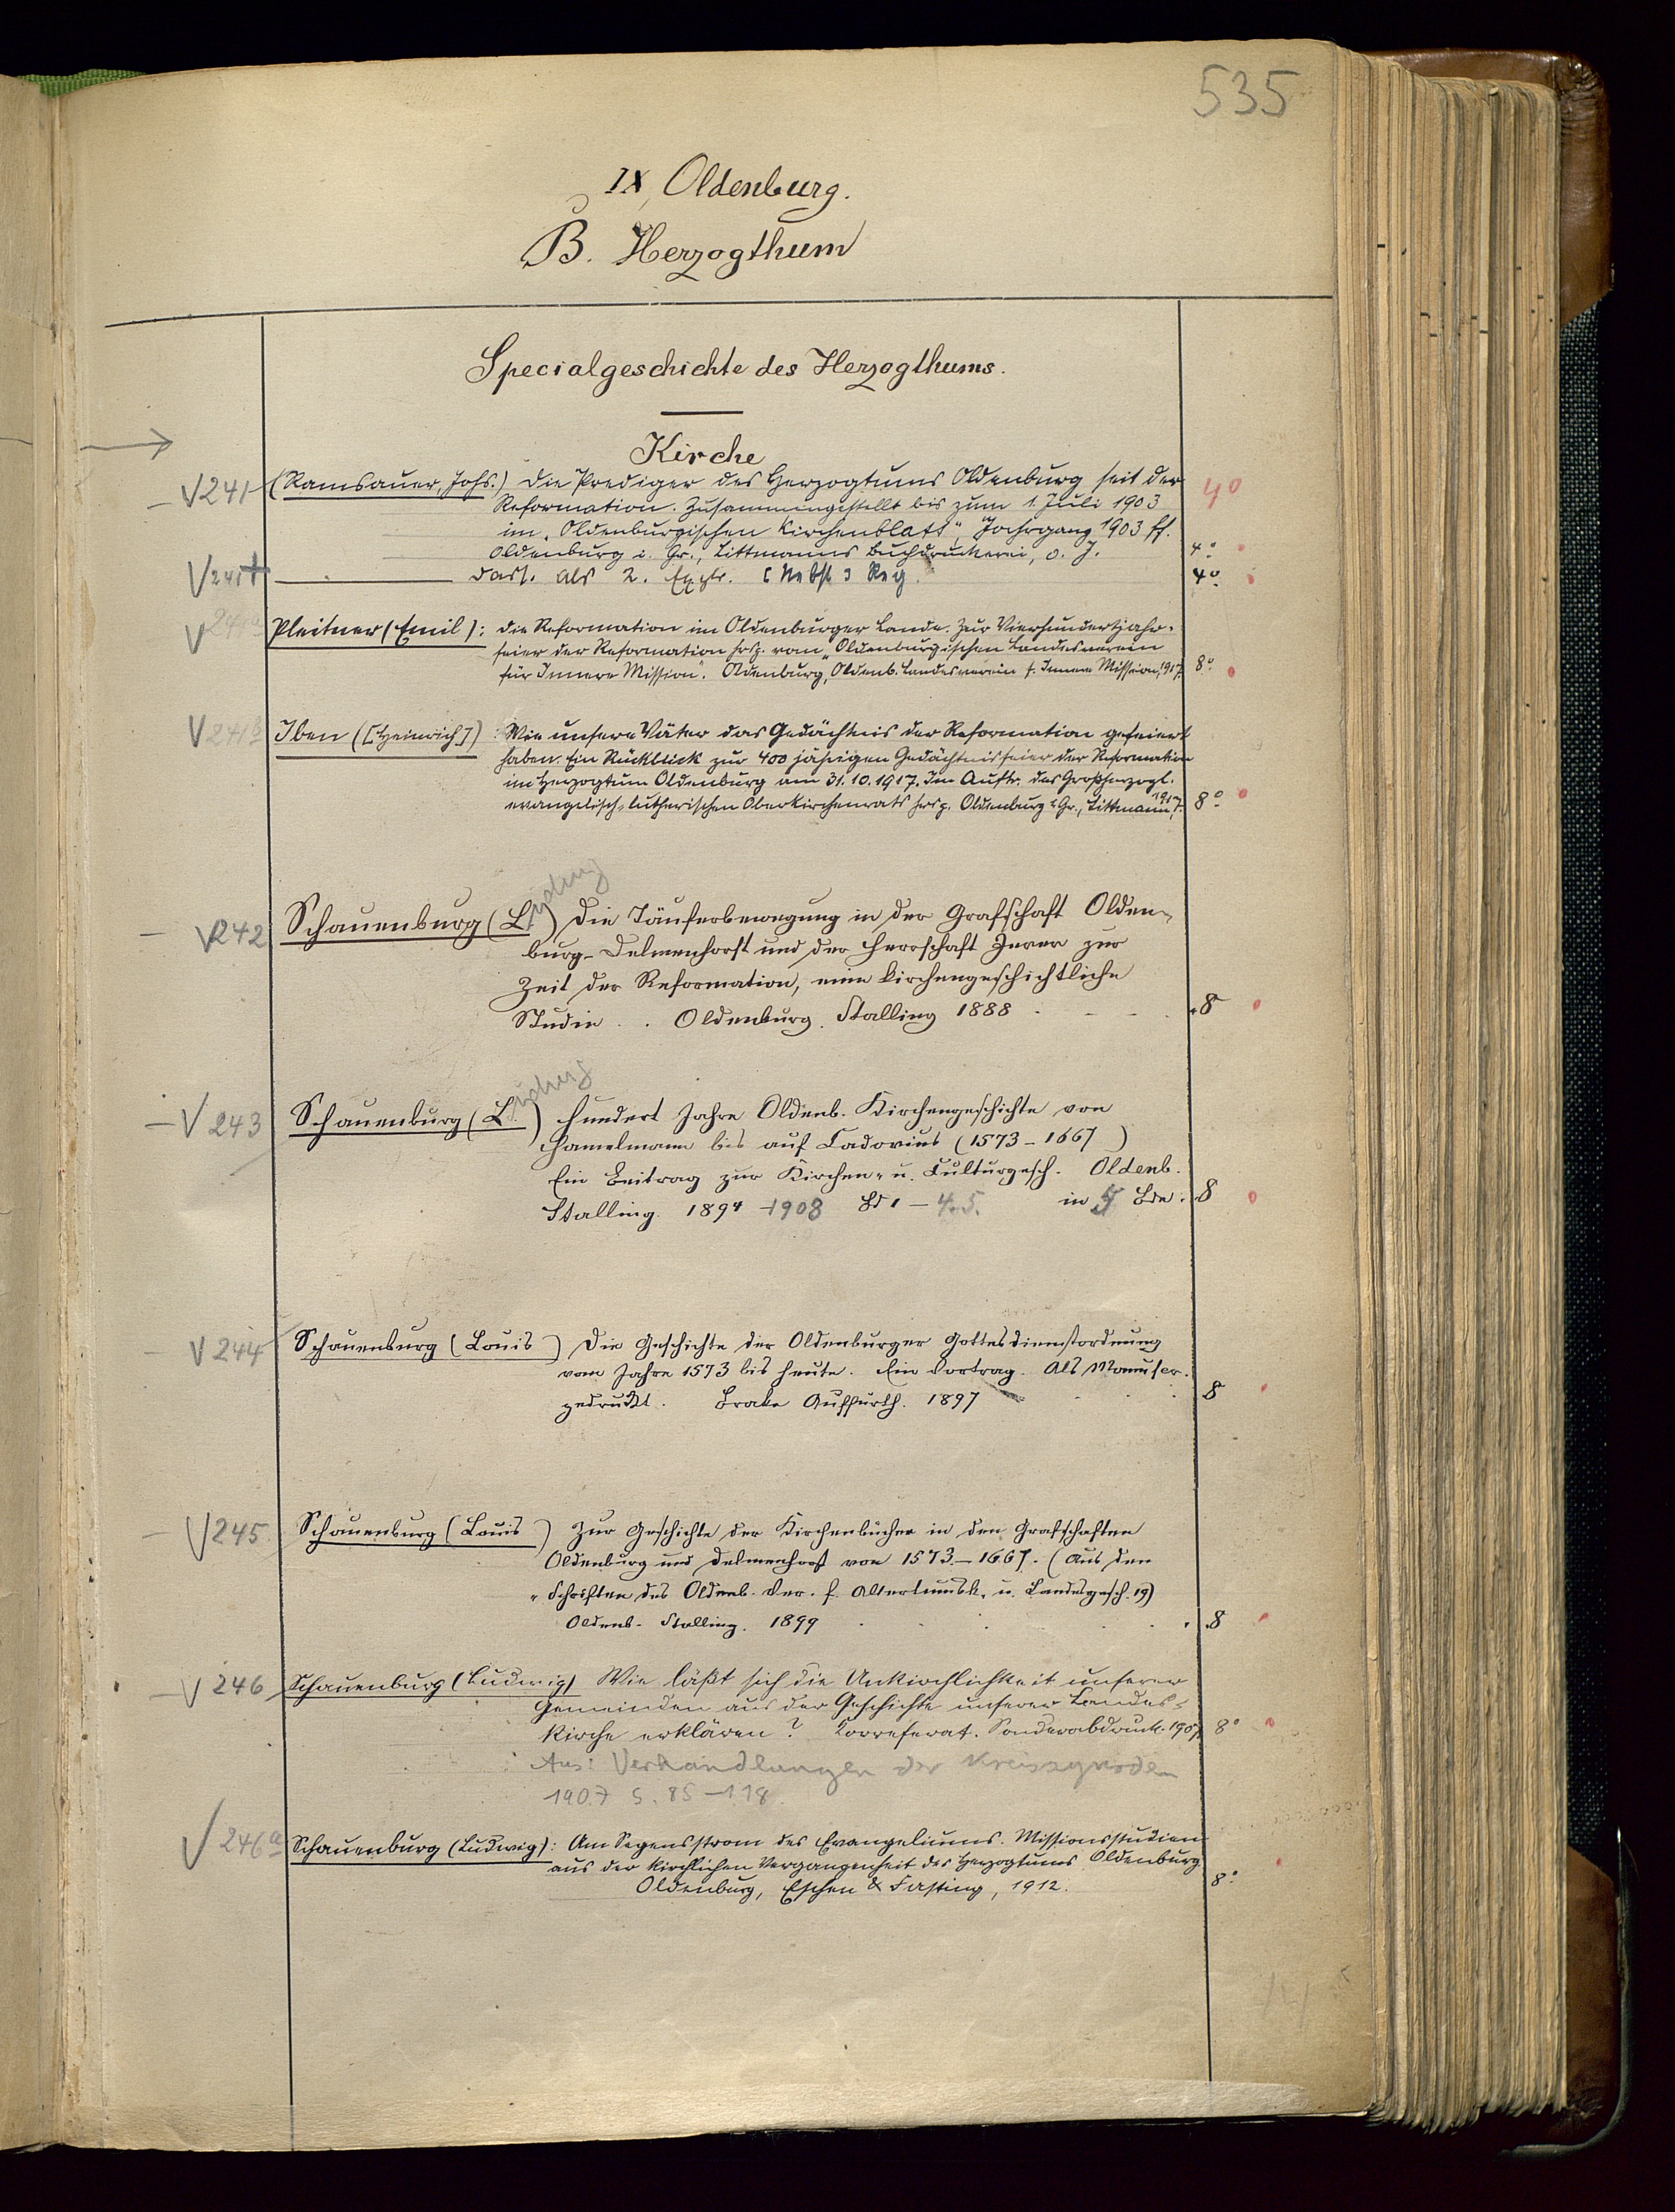 535
IX, Oldenburg.
B. Herzogthum
Specialgeschichte des Herzogthums.
Kirche
V 241 (Ramsauer, Johs.) Die Prediger des Herzogtums Oldenburg seit der 4°
Reformation. Zusammengestellt bis zum 1. Juli 1903
im „Oldenburgischen Kirchenblatt", Jahrgang 1903 ff.
Oldenburg i. Gr., Littmanns Buchdruckerei, o. J. 4°
V 241+ ——— Dass. als 2. Explr. [Nebst] Reg. 4°
V 241a Pleitner (Emil): Die Reformation im Oldenburger Lande. Zur Vierhundertjahr-
feier der Reformation hrsg. vom „Oldenburgischen Landesverein
für Innere Mission". Oldenburg, Oldenb. Landesverein f. Innere Mission, 1917. 8°
V 241b Iben ([Heinrich]): Wie unsere Väter das Gedächtnis der Reformation gefeiert
haben. Ein Rückblick zur 400 jährigen Gedächtnisfeier der Reformation
im Herzogtum Oldenburg am 31.10.1917. Im Auftr. des Großherzogl.
evangelisch-lutherischen Oberkirchenrats hrsg. Oldenburg i. Gr., Littmann, 1917. 8°
udwig
V 242 Schauenburg (L.) Die Täuferbewegung in der Grafschaft Olden-
burg-Delmenhorst und der Herrschaft Jever zur
Zeit der Reformation, eine kirchengeschichtliche
Studie. . Oldenburg. Stalling 1888 8
udwig
V 243 Schauenburg (L.) Hundert Jahre Oldenb. Kirchengeschichte von
Hamelmann bis auf Cadovius (1573-1667)
Ein Beitrag zur Kirchen- u. Culturgesch. Oldenb.
Stalling. 1894 -1908 Bd 1 - 4. 5. in 5 Bde. 8
V 244 Schauenburg (Louis) Die Geschichte der Oldenburger Gottesdienstordnung
vom Jahre 1573 bis heute. Ein Vortrag. Als Manuscr.
gedruckt. Brake Auffurth. 1897 8
V 245. Schauenburg (Louis) Zur Geschichte der Kirchenbücher in den Grafschaften
Oldenburg und Delmenhorst von 1573.-1667. (Aus den
„Schriften des Oldenb. Ver. f. Altertumsk. u. Landesgesch. 19)
Oldenb. Stalling. 1899 8
V 246 Schauenburg (Ludwig) Wie läßt sich die Unkirchlichkeit unserer
Gemeinden aus der Geschichte unserer Landes-
kirche erklären? Korreferat. Sonderabdruck. 1907. 8°
Aus: Verhandlungen der Kreissynoden
1907 S. 85-118.
V 246a Schauenburg (Ludwig): Am Segensstrom des Evangeliums. Missionsstudien
aus der kirchlichen Vergangenheit des Herzogtums Oldenburg.
Oldenburg, Eschen & Fasting, 1912. 8°